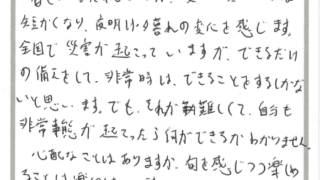 短かくなり、夜明け、夕暮れの変化を感じます。
全国で災害が起こっていますが、できるだけ
の備えをして、非常時は、できることをするしかな
いと思います。でも、それが難しくて、自分も
非常事態が起こったら何ができるかわかりません。
心配なことはありますが、旬を感じつつ楽しめ